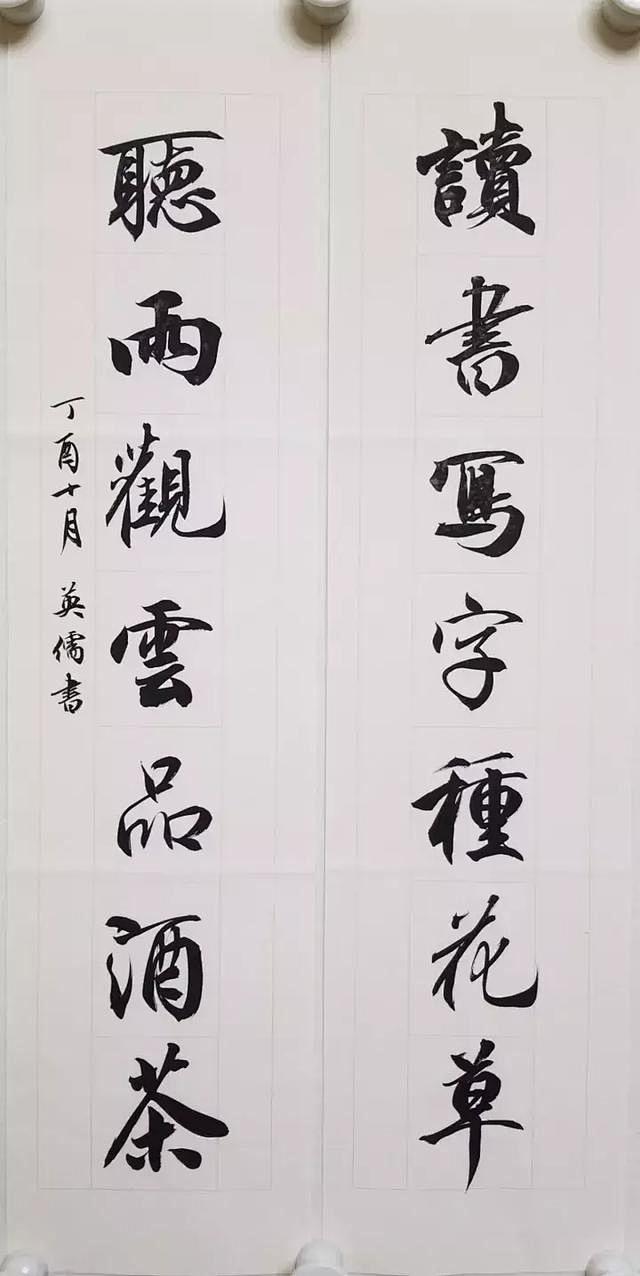 讀書寫字種花草
聽雨觀雲品酒茶
丁酉十月 英儒書